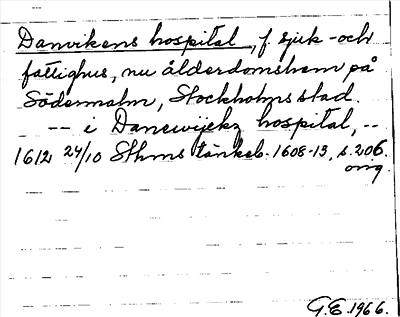 Danvikens hospital, f. sjuk- och
fattighus, nu ålderdomshem på
Södermalm, Stockholms stad.
-- i Danewijekz hospital, --
1612 24/10 Sthms tänkeb. 1608-13, s. 206.
orig.
G.E. 1966.